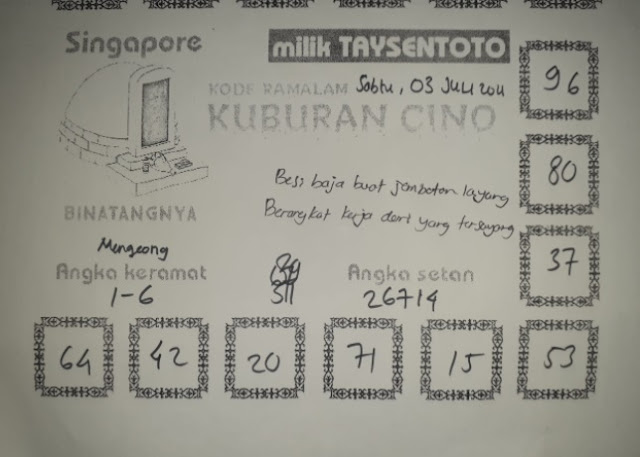 Singapore
milik TAYSENTOTO
96
KODE RAMALAM Sabtu, 03 JULI 2011
KUBURAN CINO
80
Besi baja buat jembatan layang
Berangkat kerja dari yang tersayang
BINATANGNYA
Mengeong
37
Angka keramat
Angka setan
1-6
26714
64
42
20
71
15
53